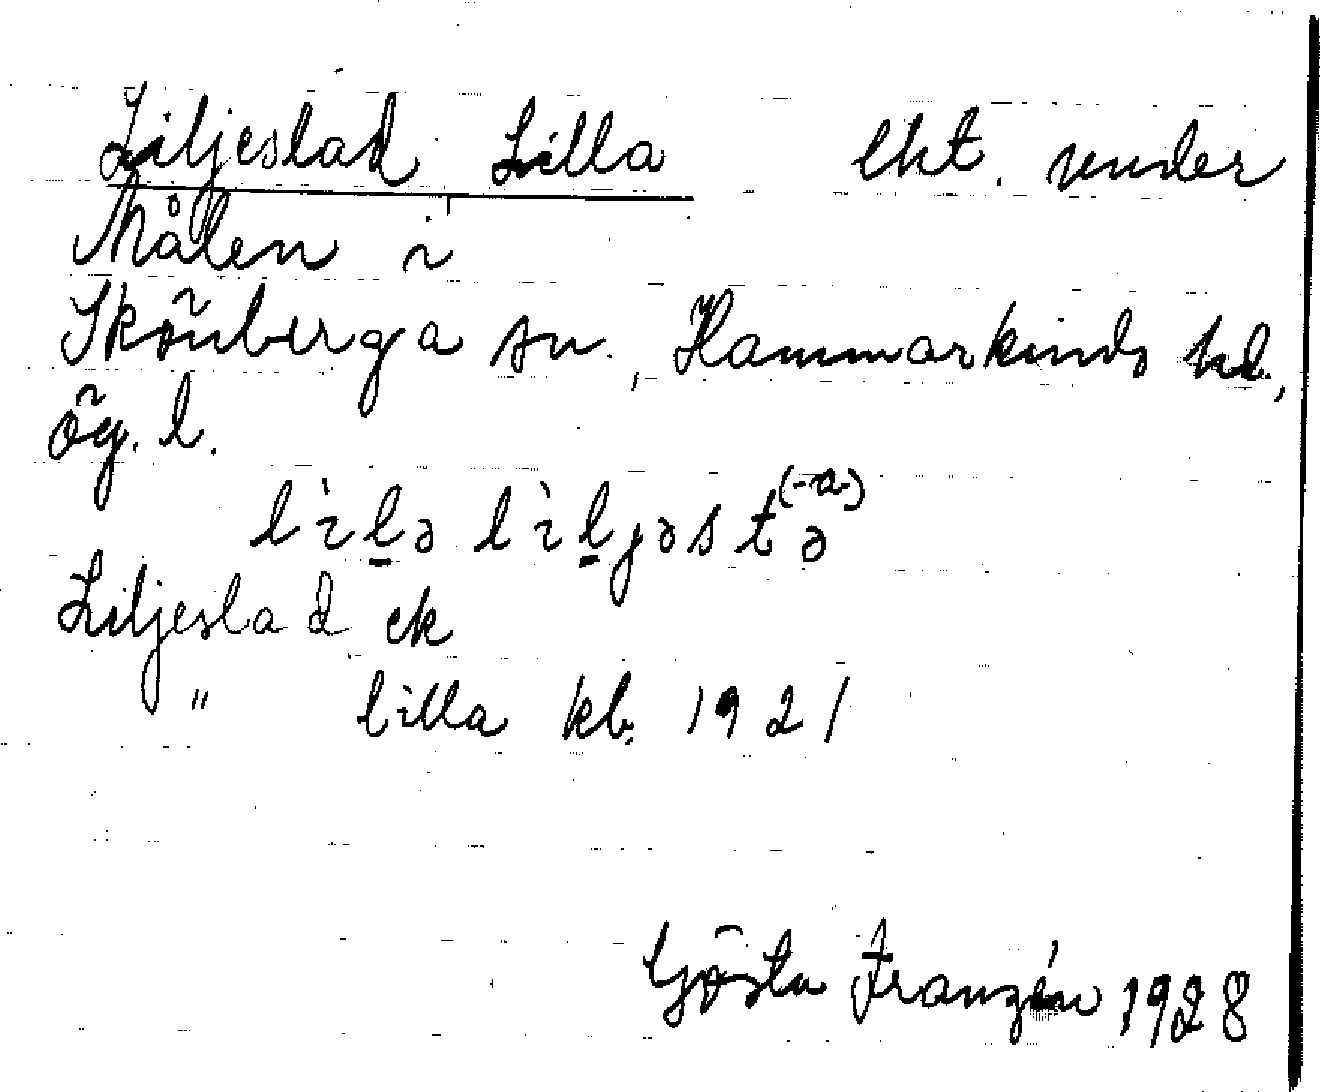 Liljestad, Lilla lht. under
Målen i
Skönberga sn., Hammarkinds hd.,
Ög. l.
lìḻə lìḻjəstə (-a)
Liljestad ek
" lilla kb. 1921
Gösta Franzén 1928